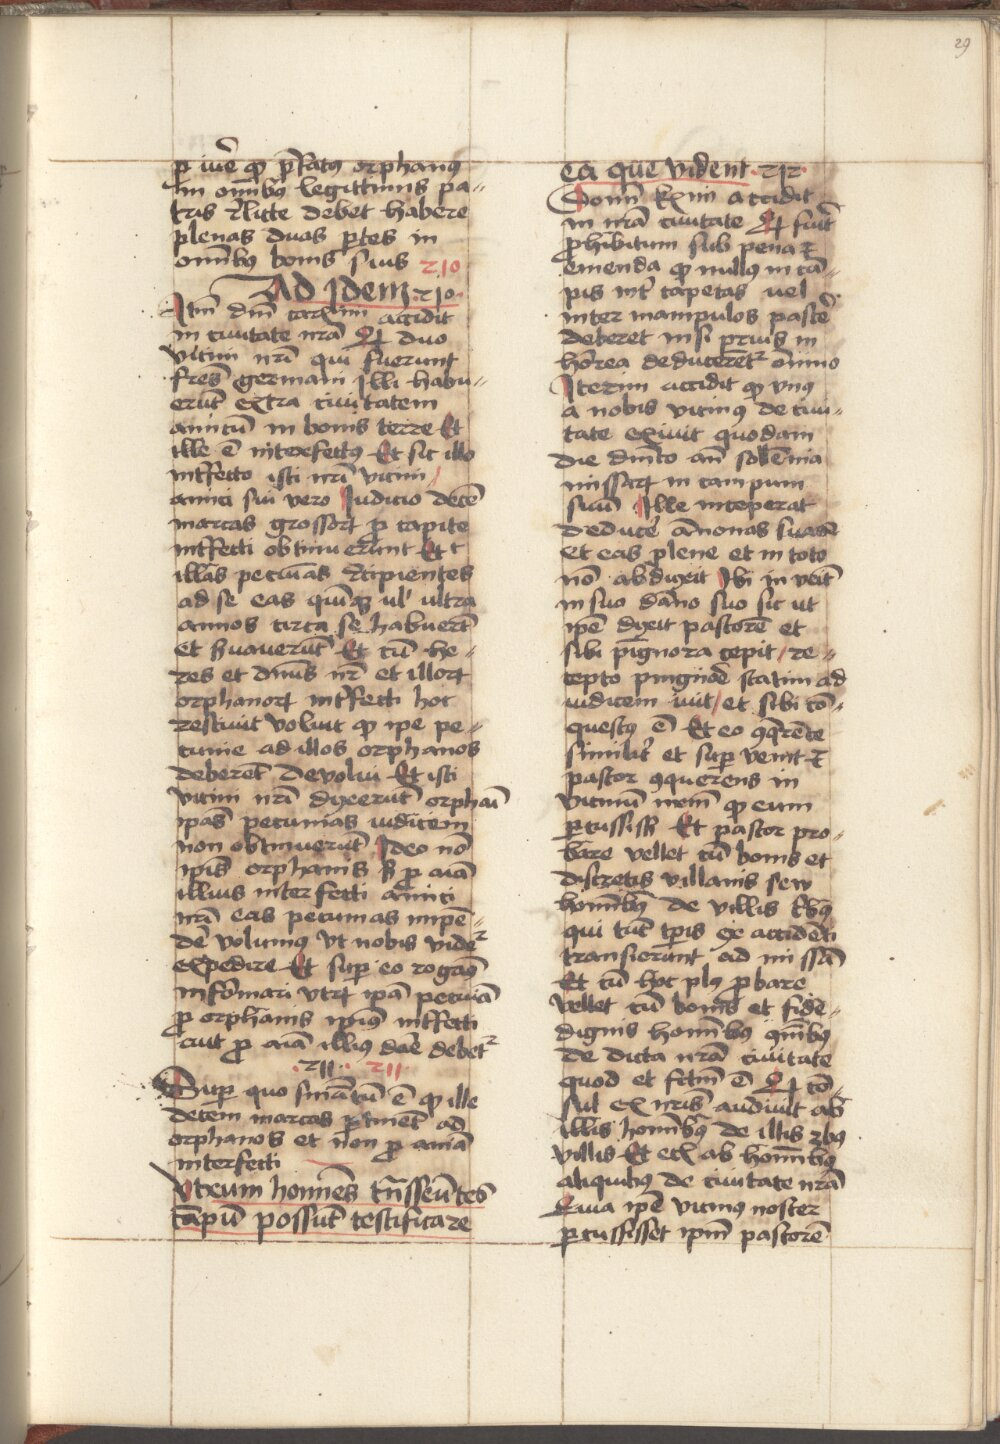 29
p iuē qꝫ p̄fatꝰ orphanꝰ
in om̄ibꝰ legittimis pa-
tris r̄licte debet habere
plenas duas ꝑtes in
om̄ibꝰ bonis suis 210
Ad Idem .210.
Itm̄ dm̄ accidit
in ciuitate nr̄a Qꝫ duo
vicini nr̄i qui fuerunt
fr̄es germani Illi habu-
erūt extra ciuitatem
amicū in bonis terre Et
ille ē interfectꝰ Et sic illo
int̄fecto isti nr̄i vicini
amici sui vero Iudicio decē
marcas grossoꝝ ꝓ capite
int̄fecti obtinuerunt Et
illas pecūias r̄cipientes
ad se eas qūiqꝫ ul' ultra
annos circa se habuerūt
et s̄uauerūt Et cū he-
res et dn̄us nr̄ et illoꝝ
orphanoꝝ int̄fecti hoc
resciuit voluit qꝫ ip̄e pe-
cunie ad illos orphanos
deberēt deuolui Et isti
vicini nr̄i dixerūt orphāi
ip̄as pecunias iudicem
non obtinuerūt Ideo nō
ip̄is orphanis s̄ ꝓ aīa
illius interfecti amici
nr̄i eas pecunias impē-
dē volumꝰ vt nobis videt̄
expedire Et suꝑ eo rogamꝰ
informari vtrꝫ ip̄a pecūia
ꝓ orphanis ipiꝰ int̄fecti
aut ꝓ aīa illiꝰ dari debet
.211. 211.
Suꝑ quo sn̄iatū ē qꝫ ille
decem marcas ꝑtinēt ad
orphanos et non ꝓ anīa
interfecti
Vtrum homīes tn̄sseūtes
cāpū possūt testificare
ea que vident .212.
Domī accidit
in nr̄a ciuitate Qꝫ fuit
ꝓhibitum sub pena et
emenda qꝫ nullꝰ in cā-
pis int̄ capetas uel
inter manipulos pascē
deberet nisi prius in
horrea deducerent̄ om̄ino
Iterum accidit qꝫ vnꝰ
a nobis vicinꝰ de ciui-
tate exiuit quodam
die dn̄ico an̄ solēnia
missaꝝ in campum
suū Ille inceperat
deducē ānonas suas
et eas plene et in toto
nō abduxit Ibi inueīt
in suo dāno suo sic ut
ip̄e dixit pastorē et
sibi pignora cepit / re-
cepto pingnoē statim ad
iudicem iuit / et sibi cō-
questꝰ ē Et eo ꝯq̄rēte
similit̄ et suꝑ venit
pastor ꝯquerens in
vicinū meū qꝫ eum
ꝑcussisset Et pastor pro-
bare vellet cū bonis et
discretis villanis seu
homībꝰ de villis
qui tūc tꝑis ex accidēti
transierunt ad missā
Et cū hoc plꝰ ꝓbare
vellet cū bonis et fide-
dignis homībꝰ
de dicta nr̄a ciuitate
quod et fctm̄ ē Qꝫ cō-
sul ex nr̄is audiuit ab
illis homībꝰ de illis
villis Et ecꝫ ab homībꝰ
aliquibꝰ de ciuitate nr̄a
Quia ip̄e vicinꝰ noster
ꝑcussisset ipm̄ pastorē